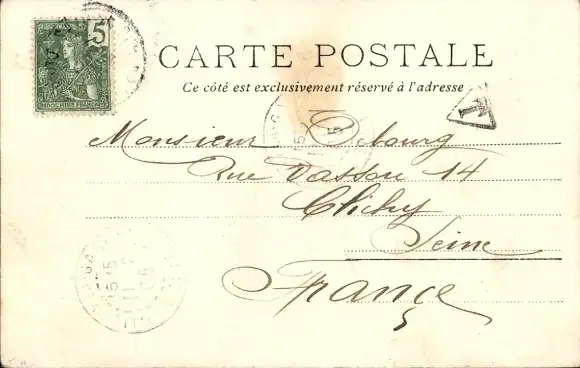 5
INDO-CHINE FRANÇAISE
CARTE POSTALE
Ce côté est exclusivement réservé à l'adresse
T
Monsieur Debourg
Rue Vassou 14
Clichy
Seine
France